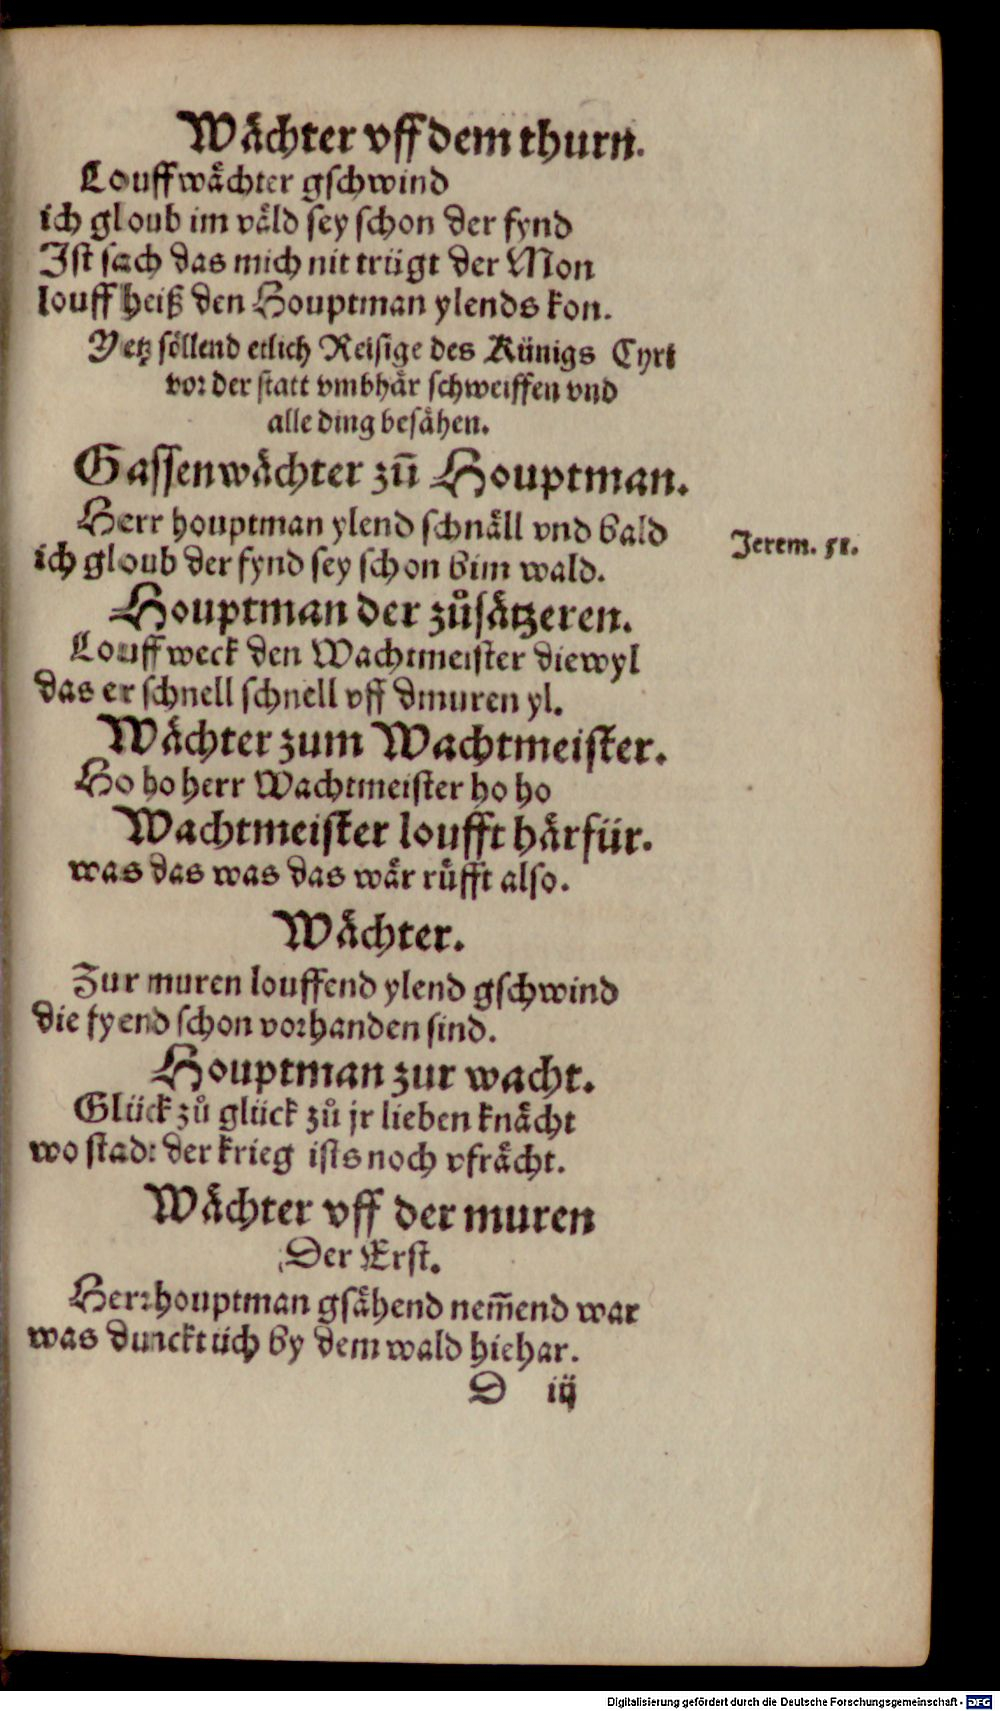 Wächter vff dem thurn.
Louff wächter gschwind
ich gloub im väld sey schon der fynd
Ist sach das mich nit trügt der Mon
louff heiß den Houptman ylends kon.
Yetz söllend etlich Reisige des Künigs Cyri
vor der statt vmbhär schweiffen vnd
alle ding besähen.
Gassenwächter zū Houptman.
Herr houptman ylend schnäll vnd bald
Jerem. 51.
ich gloub der fynd sey schon bim wald.
Houptman der zůsätzeren.
Louff weck den Wachtmeister diewyl
das er schnell schnell vff dmuren yl.
Wächter zum Wachtmeister.
Ho ho herr Wachtmeister ho ho
Wachtmeister loufft härfür.
was das was das wär rüfft also.
Wächter.
Zur muren louffend ylend gschwind
die fyend schon vorhanden sind.
Houptman zur wacht.
Glück zů glück zů jr lieben knächt
wo stad: der krieg ists noch vfrächt.
Wächter vff der muren
Der Erst.
Herr houptman gsähend nem̄end war
was dunckt üch by dem wald hiehar.
D iij
Digitalisierung gefördert durch die Deutsche Forschungsgemeinschaft - DFG